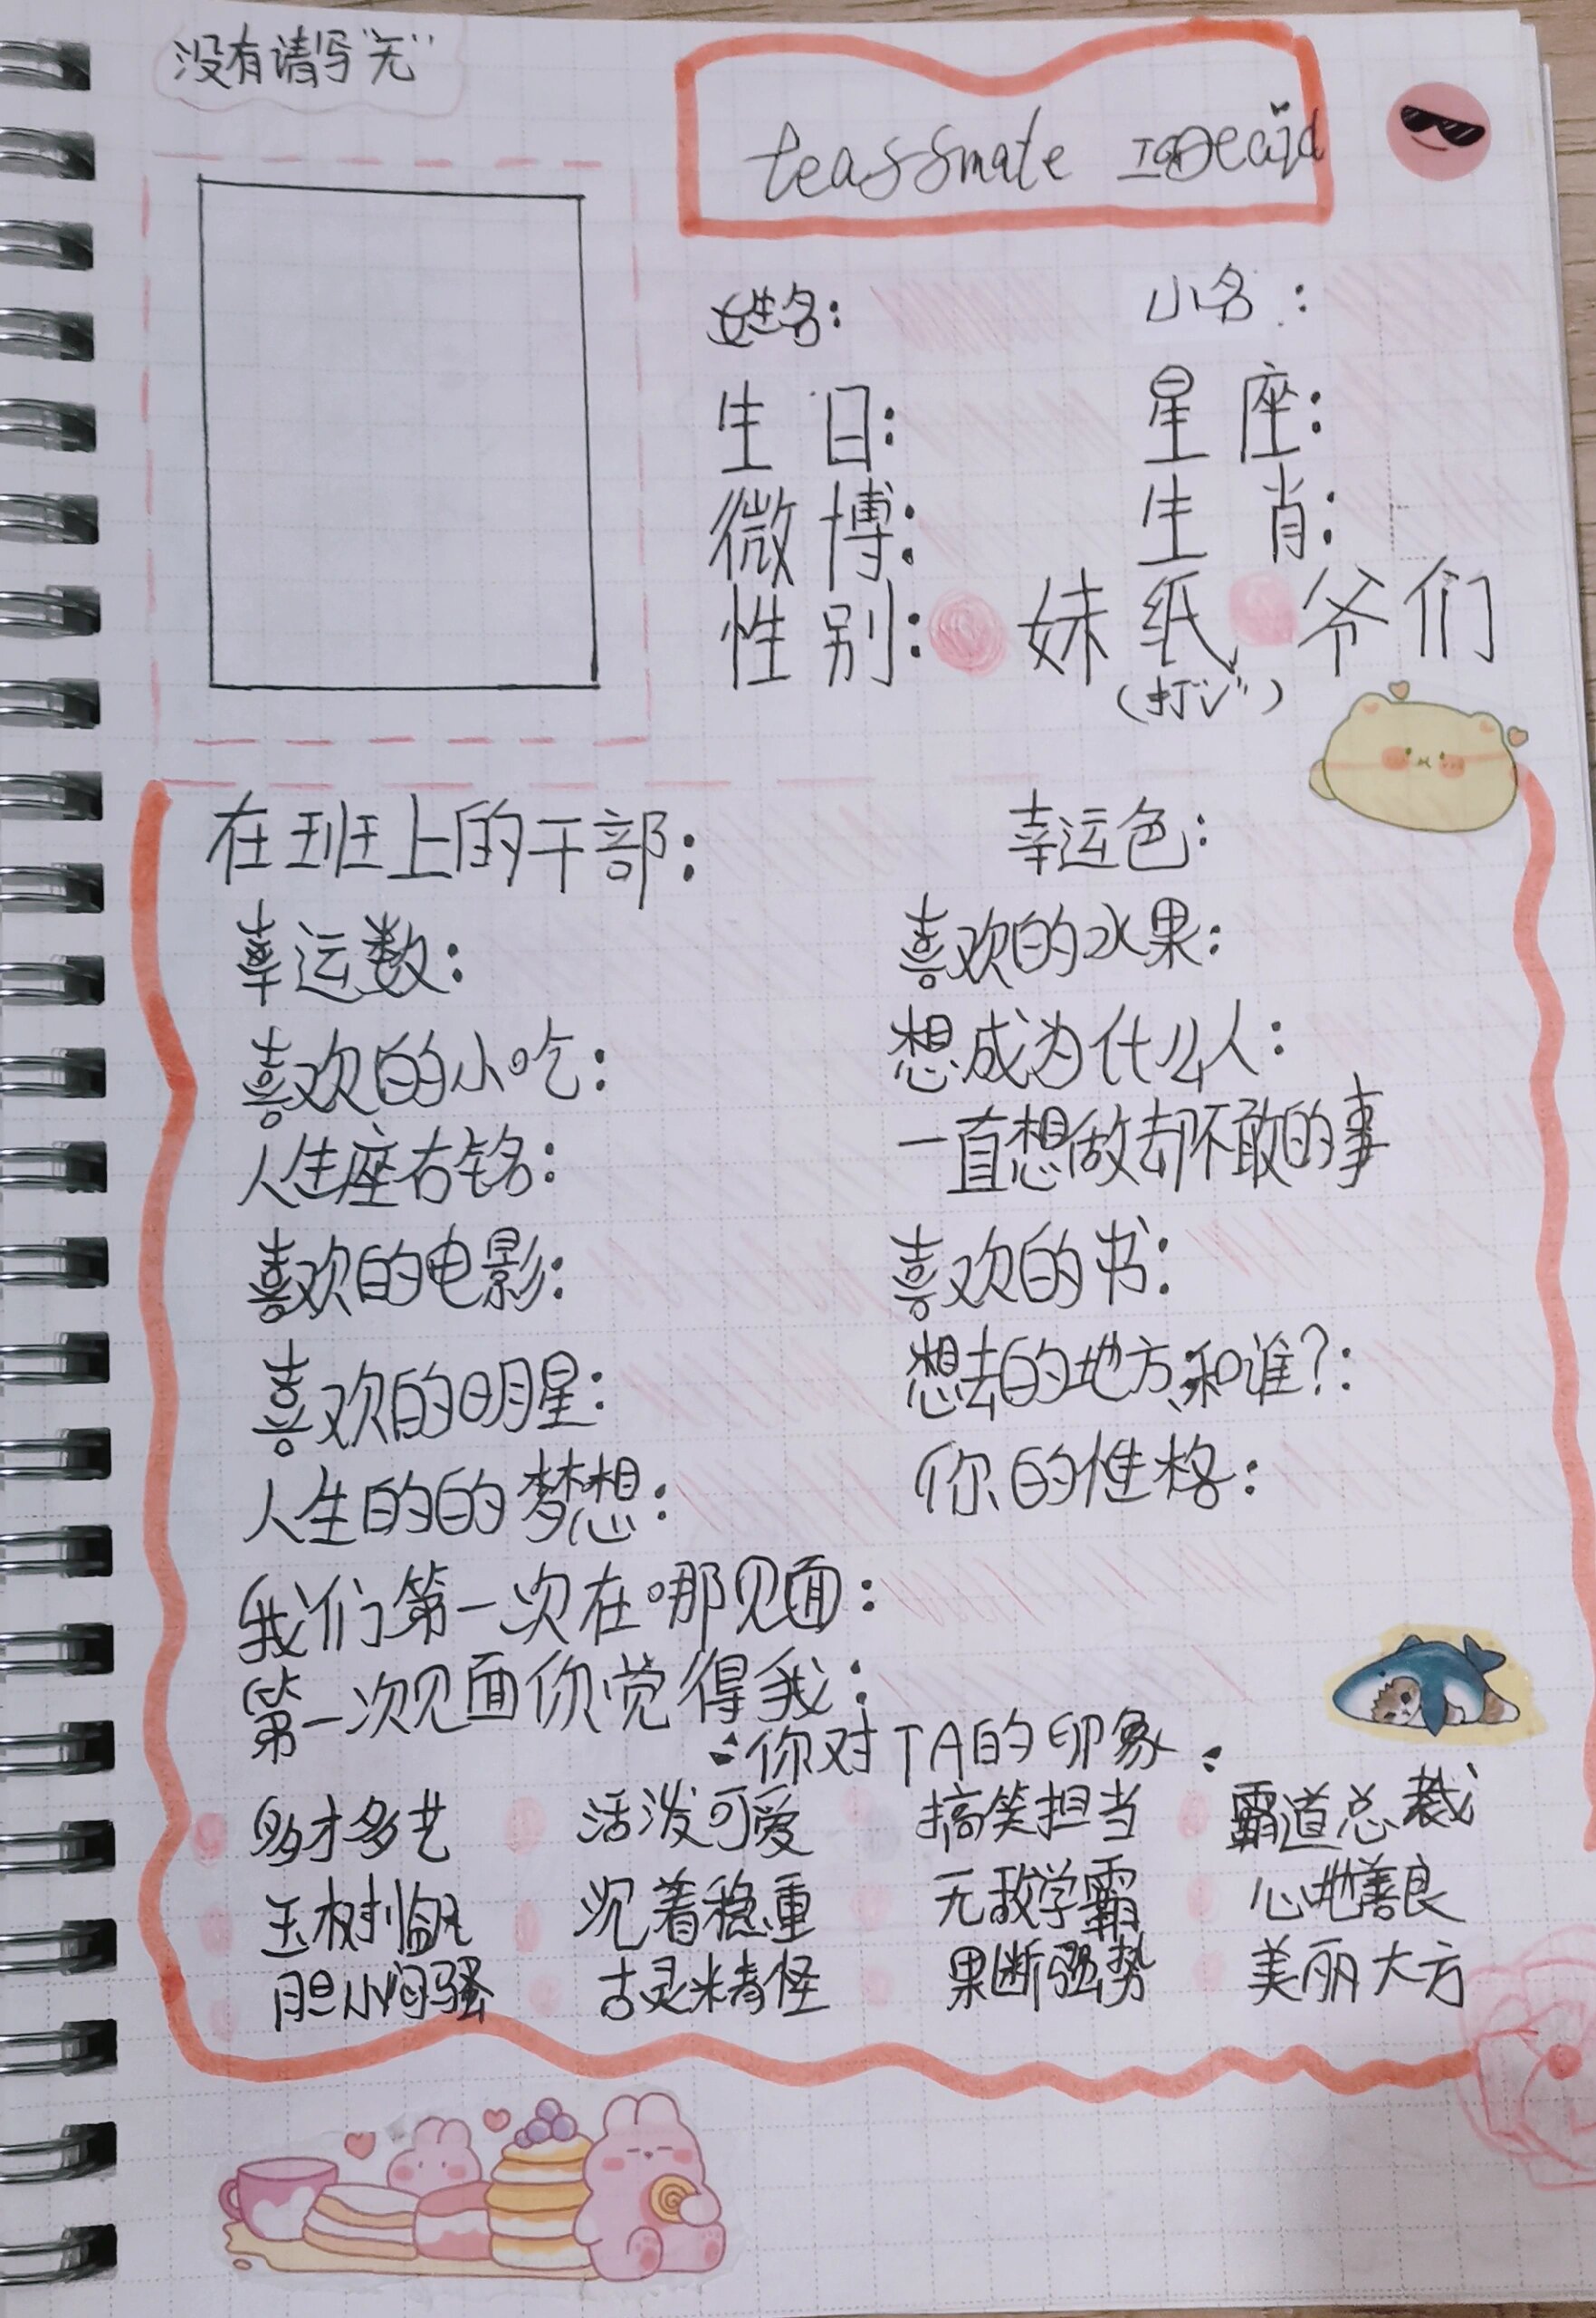 没有请写“无”
teassmate
姓名: 小名:
生日: 星座:
微博: 生肖:
性别: 妹纸 爷们
(打“√”)
在班上的干部: 幸运色:
幸运数: 喜欢的水果:
喜欢的小吃: 想成为什么人:
人生座右铭: 一直想做却不敢的事
喜欢的电影: 喜欢的书:
喜欢的明星: 想去的地方,和谁?:
人生的的梦想: 你的性格:
我们第一次在哪见面:
第一次见面你觉得我:
:你对TA的印象:
多才多艺 活泼可爱 搞笑担当 霸道总裁
玉树临风 沉着稳重 无敌学霸 心地善良
胆小闷骚 古灵精怪 果断强势 美丽大方